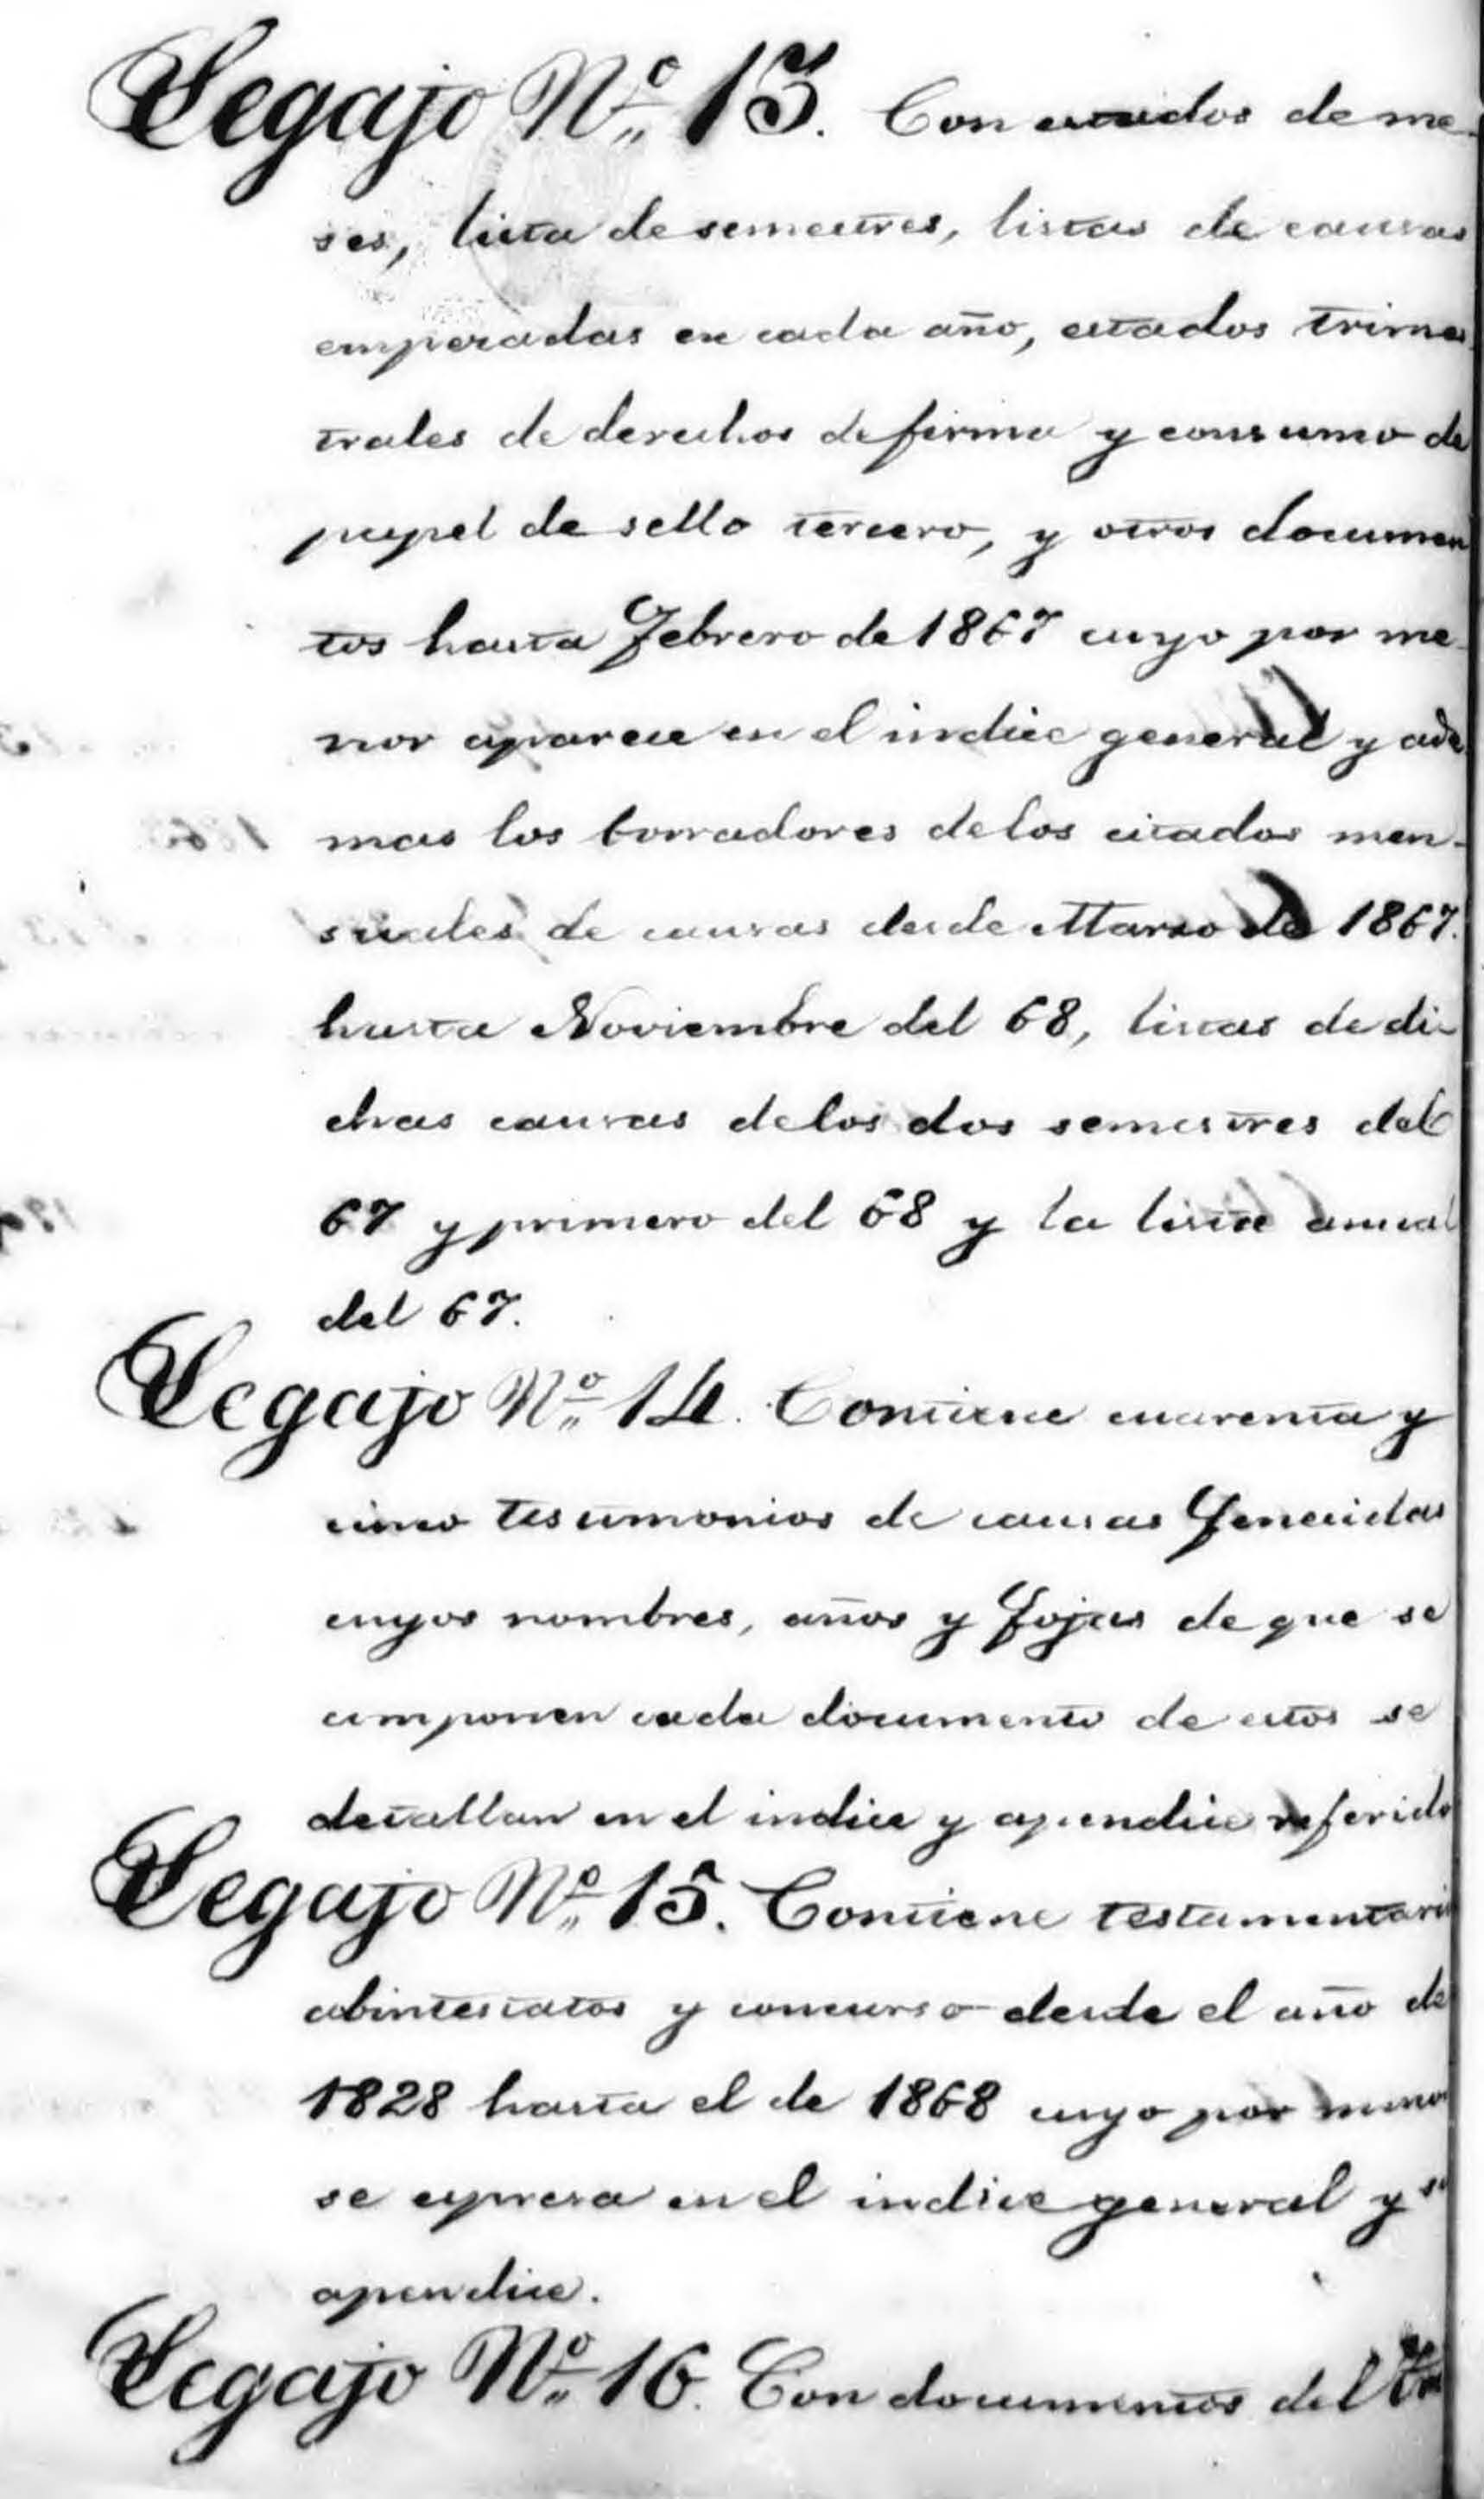 Legajo Nº 13. Con estados de me-
ses, lista de semestres, listas de causas
emperadas en cada año, estados trimes-
trales de derechos de firma y consumo de
papel de sello tercero, y otros documen
tos hasta Febrero de 1867 cuyo por me-
nor aparece en el indice general y ade
mas los borradores de los citados men-
suales de causas desde Marzo de 1867.
hasta Noviembre del 68, listas de di-
chas causas de los dos semestres del
67 y primero del 68 y la lista anual
del 67.
Legajo Nº 14. Contiene cuarenta y
cinco testimonios de causas fenecidas
cuyos nombres, años y fojas de que se
componen cada documento de estos se
detallan en el indice y apendice referido
Legajo Nº 15. Contiene testamentari
abintestatos y concurso desde el año de
1828 hasta el de 1868 cuyo por menor
se expresa en el indice general y su
apendice.
Legajo Nº 16. Con documentos del